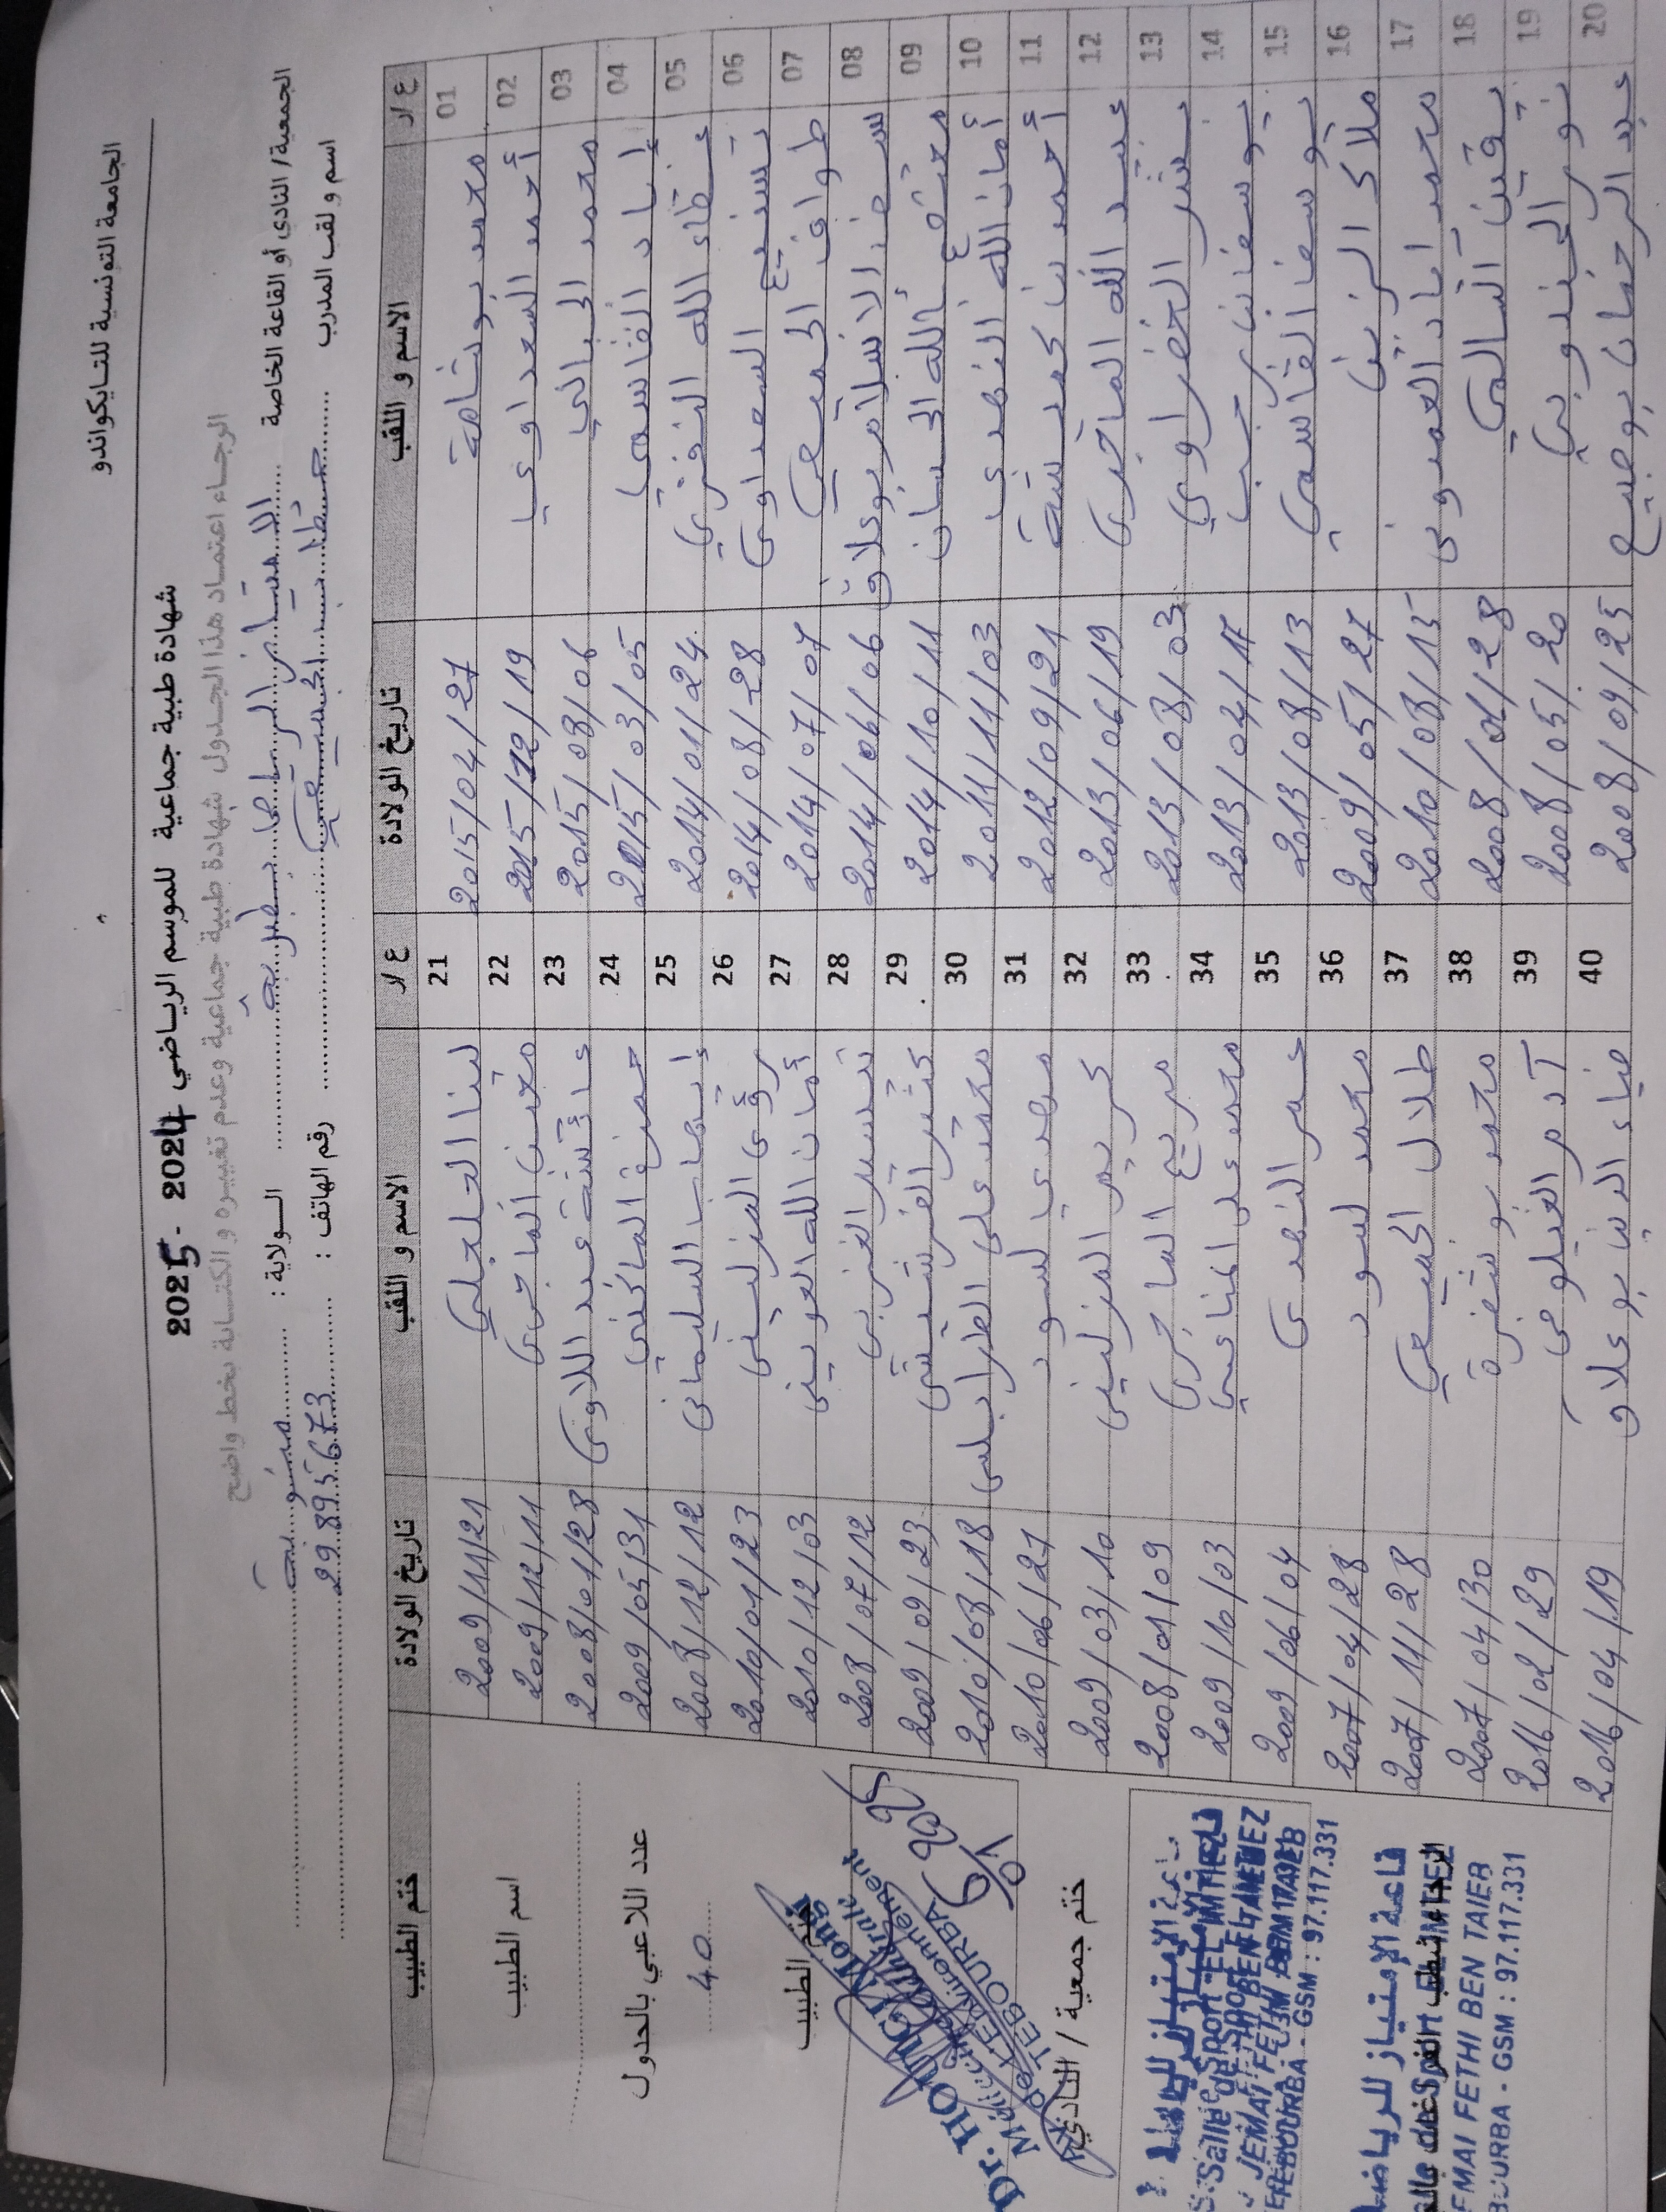 الجامعة التونسية للتايكواندو
شهادة طبية جماعية للموسم الرياضي 2024 - 2025
الرجاء اعتماد هذا الجدول شهادة طبية جماعية وعدم تغييره و الكتابة بخط واضح
الجمعية/ النادي أو القاعة الخاصة الامتياز الرياضي بطبربة الولاية : منوبة
اسم و لقب المدرب رقم الهاتف : 29.895.673
ع / ر الاسم و اللقب تاريخ الولادة ع / ر الاسم و اللقب تاريخ الولادة ختم الطبيب
01 محمد بوشامة 2015/04/27 21 لينا الجلجلي 2009/11/21
02 أحمد السعداوي 2015/12/19 22 الماجري 2009/12/11 اسم الطبيب
03 محمد الجبالي 2015/08/06 23 عائشة عبد اللاوي 2008/01/28
04 إياد القاسمي 2015/03/05 24 حمزة الماكني 2009/05/31 عدد اللاعبي بالجدول
05 عطاء الله النفزي 2014/01/24 25 إيهاب السليماني 2008/12/12 40
06 تسنيم السعداوي 2014/08/28 26 رؤى المزليني 2010/01/23
07 طواف الجميعي 2014/07/07 27 أمان الله العويني 2010/12/03 ختم الطبيب
08 سيف الاسلام بوعلاق 2014/06/06 28 تيسير الغربي 2008/07/12
09 معتصم بالله الحسان 2014/10/11 29 القرشيشي 2009/09/23
10 أمان الله النهدي 2011/11/03 30 محمد علي الطرابلسي 2010/08/18
11 أحمد بن كعبشة 2012/09/21 31 مهدي لسود 2010/06/27 ختم جمعية / النادي
12 عبد الله الماجري 2013/06/19 32 المزليني 2009/03/10
13 بشر الخضراوي 2013/08/03 33 مريم الماجري 2008/01/09
14 يوسف بن رجب 2013/04/17 34 محمد علي المناعي 2009/10/03
15 يوسف القاسمي 2013/08/13 35 عمر النهدي 2009/06/04
16 ملاك الزين 2009/05/27 36 محمد لسود 2007/04/28
17 محمد اياد العمدوني 2010/08/15 37 طلال الجميعي 2007/11/28
18 يقين السالمي 2008/01/28 38 محمد بوشفرة 2007/04/30
19 نور الجندوبي 2008/05/20 39 آدم الغيلوفي 2016/02/29
20 عبد الرحمان بوصبيع 2008/09/25 40 ضياء الدين بوعلاق 2016/04/19
Dr. HOUNGI Mongi
TEBOURBA
6/01 2025
Salle de Sport EL IMTIEZ
JEMAI FETHI BEN TAIEB
TEBOURBA - GSM : 97.117.331
قاعة الإمتياز للرياضة
Salle de Sport EL IMTIEZ
JEMAI FETHI BEN TAIEB
TEBOURBA - GSM : 97.117.331